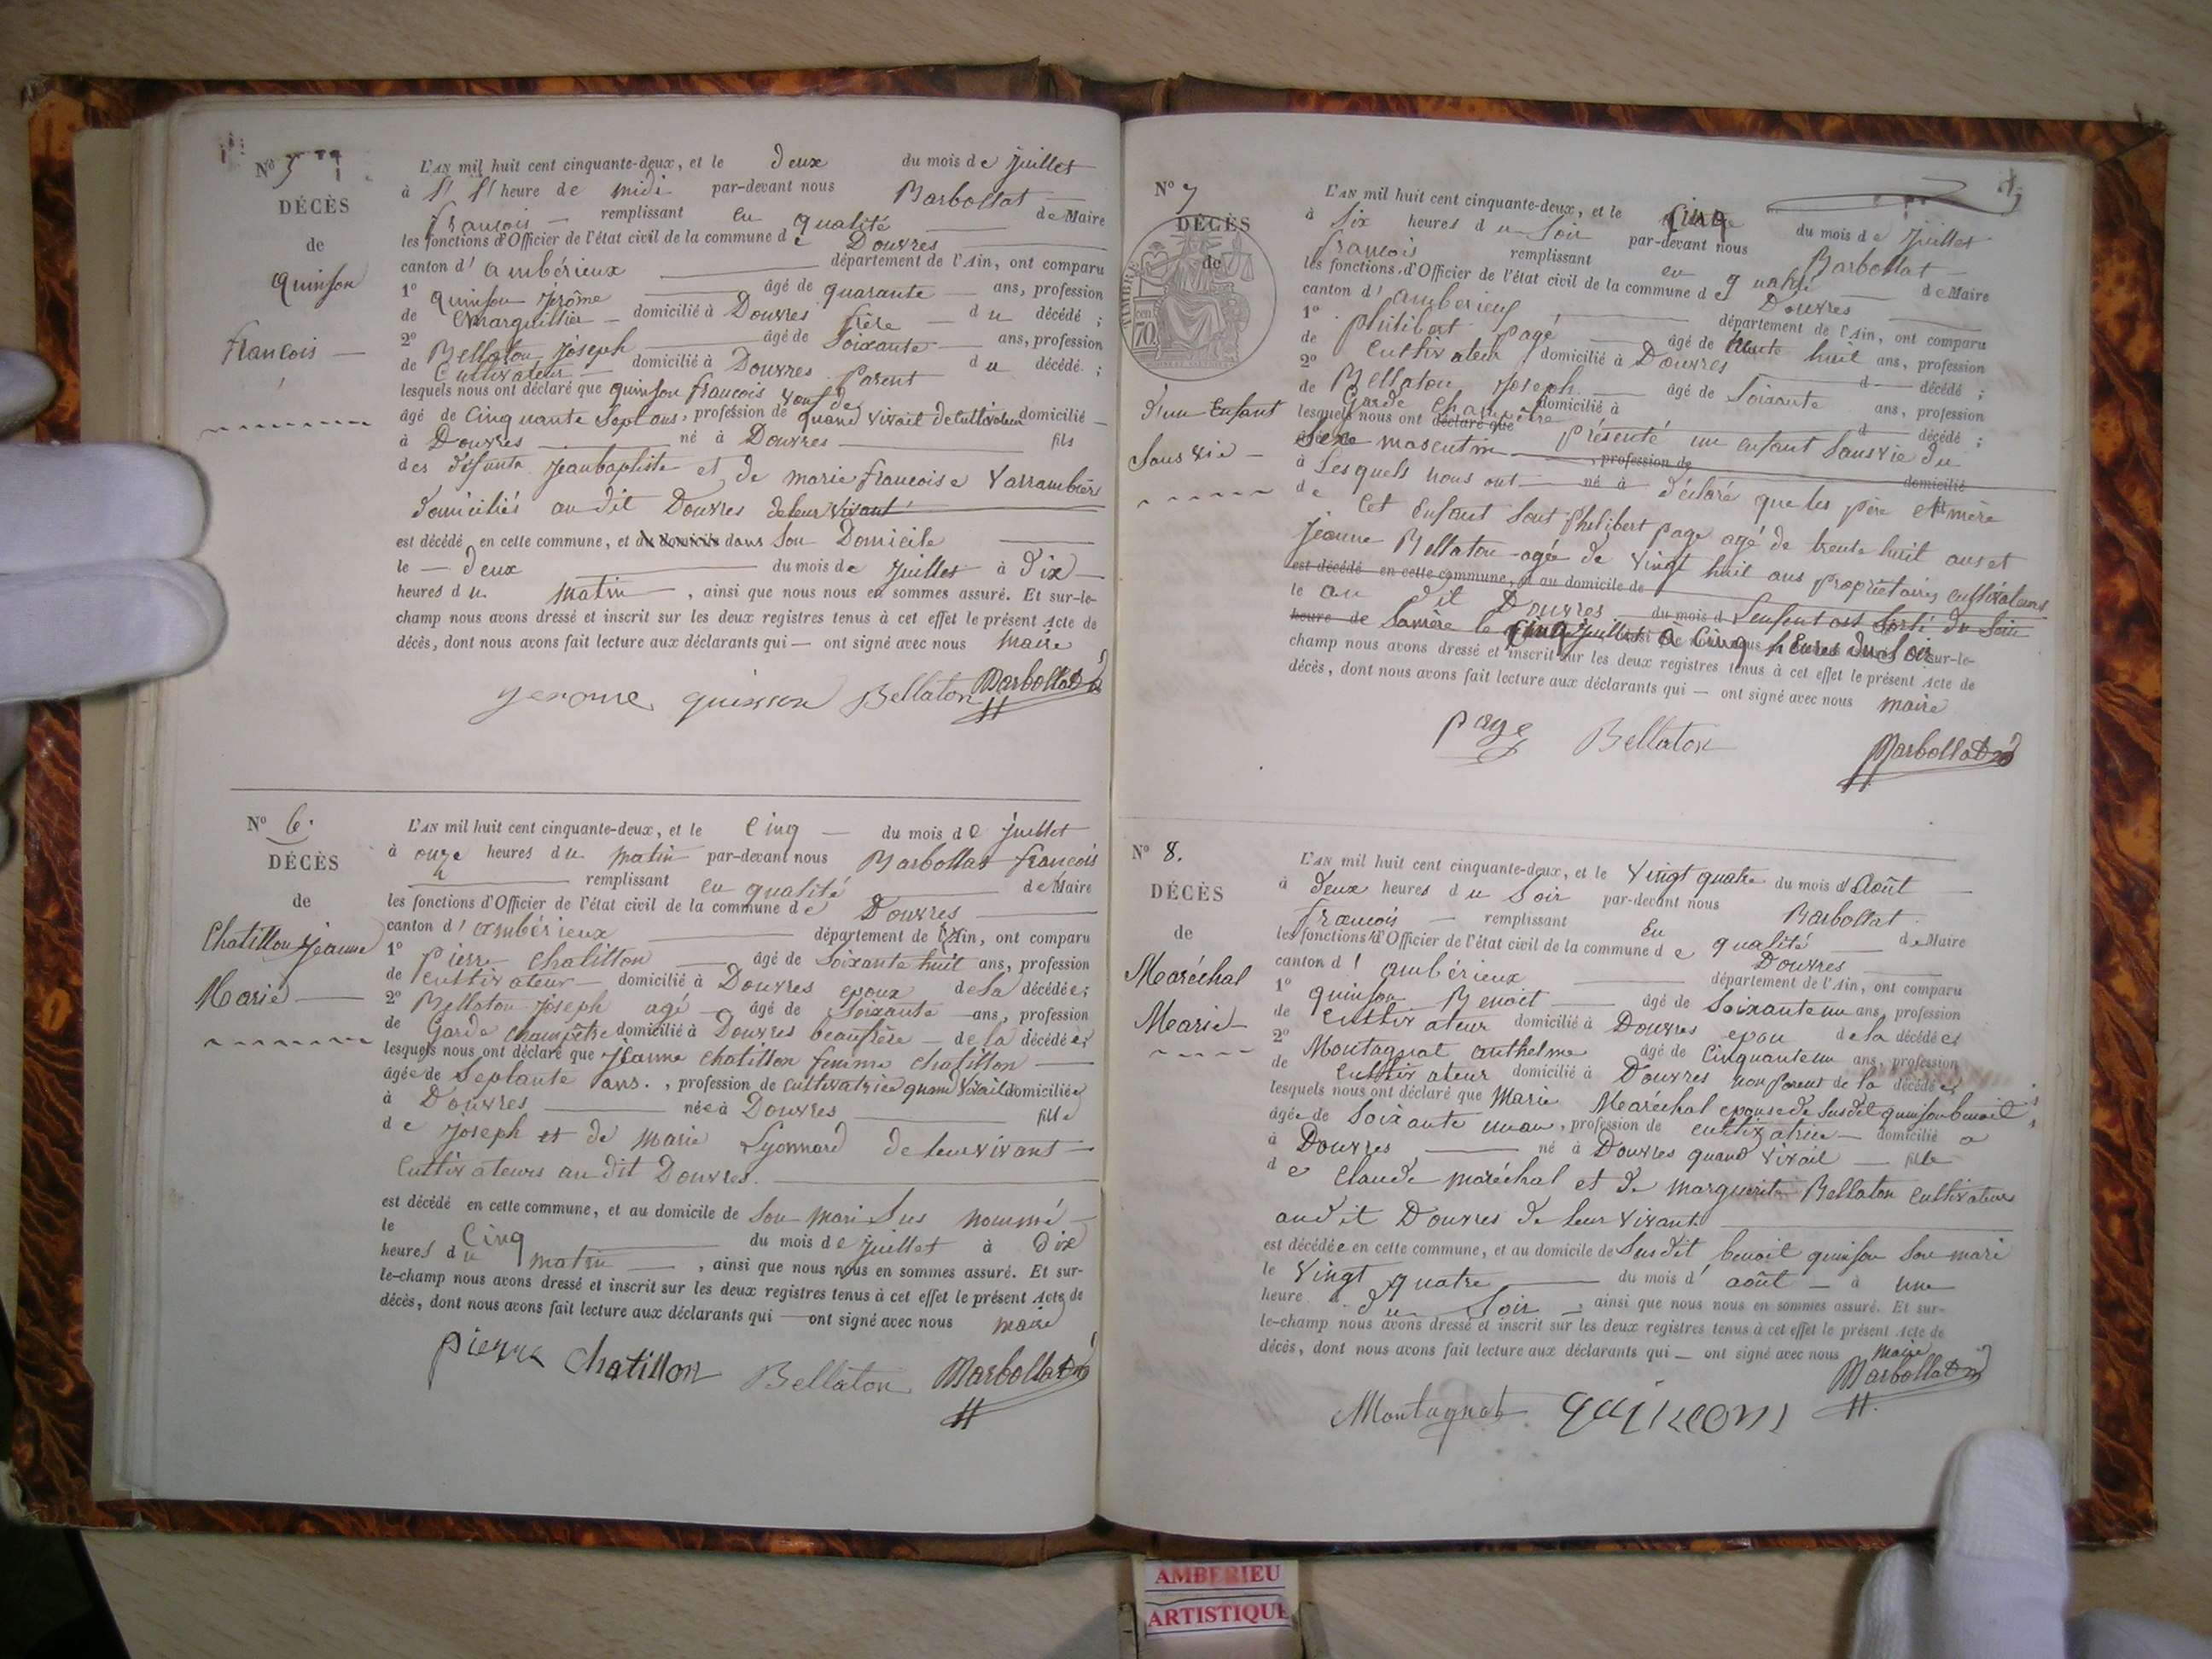 N° 5
DÉCÈS
de
quinson
francois
L'AN mil huit cent cinquante-deux, et le deux du mois de juillet
à heure de midi par-devant nous Barbollat
francois remplissant en qualité de Maire
les fonctions d'Officier de l'état civil de la commune de Douvres
canton d'ambérieux département de l'Ain, ont comparu
1° quinson jérôme âgé de quarante ans, profession
de Marguillier domicilié à Douvres frère du décédé ;
2° Bellaton joseph âgé de Soixante ans, profession
de Cultivateur domicilié à Douvres Parent du décédé ;
lesquels nous ont déclaré que quinson francois
âgé de Cinquante Sept ans, profession de quand vivait de Cultivateur domicilié
à Douvres né à Douvres fils
des défunts jeanbaptiste et de marie francoise Varrambier
domiciliés au dit Douvres de leur vivant
est décédé en cette commune, et au domicile dans Son Domicile
le deux du mois de juillet à dix
heures du matin, ainsi que nous nous en sommes assuré. Et sur-le-
champ nous avons dressé et inscrit sur les deux registres tenus à cet effet le présent Acte de
décès, dont nous avons fait lecture aux déclarants qui ont signé avec nous maire
jerome quinson Bellaton Barbollat
N° 6.
DÉCÈS
de
Chatillon jeanne
Marie
L'AN mil huit cent cinquante-deux, et le Cinq du mois de juillet
à onze heures du matin par-devant nous Barbollat francois
remplissant en qualité de Maire
les fonctions d'Officier de l'état civil de la commune de Douvres
canton d'ambérieux département de l'Ain, ont comparu
1° Pierre Chatillon âgé de Soixante huit ans, profession
de cultivateur domicilié à Douvres epoux de la décédée;
2° Bellaton joseph agé âgé de Soixante ans, profession
de Garde champêtre domicilié à Douvres beaufrère de la décédée;
lesquels nous ont déclaré que jeanne chatillon femme chatillon
âgée de Septante ans., profession de cultivatrice quand vivait domiciliée
à Douvres née à Douvres fille
de joseph et de marie Lyonnard de leur vivant
Cultivateurs au dit Douvres.
est décédé en cette commune, et au domicile de Son mari Sus nommé
le Cinq du mois de juillet à dix
heures du matin, ainsi que nous nous en sommes assuré. Et sur-
le-champ nous avons dressé et inscrit sur les deux registres tenus à cet effet le présent Acte de
décès, dont nous avons fait lecture aux déclarants qui ont signé avec nous maire
pierre chatillon Bellaton Barbollat
N° 7
DÉCÈS
de
TIMBRE
70
d'un Enfant
Sans vie
L'AN mil huit cent cinquante-deux, et le cinq du mois de juillet
à Six heures du Soir par-devant nous Barbollat
francois remplissant en qualité de Maire
les fonctions d'Officier de l'état civil de la commune de Douvres
canton d'ambérieux département de l'Ain, ont comparu
1° Philibert page âgé de trente huit ans, profession
de Cultivateur domicilié à Douvres d décédé ;
2° Bellaton joseph âgé de Soixante ans, profession
de Garde champêtre domicilié à d décédé ;
lesquels nous ont déclaré que présenté un enfant Sans vie du
Sexe masculin profession de domicilié
à Lesquels nous ont né à déclaré que les père et mère
de Cet Enfant Sont philibert page agé de trente huit ans et
jeanne Bellaton agée de vingt huit ans propriétaires cultivateurs
est décédé en cette commune, et au domicile de
le au dit Douvres du mois d L'enfant est Sorti du Sein
heure de Samère le cinq juillet à Cinq heures du Soir sur-le-
champ nous avons dressé et inscrit sur les deux registres tenus à cet effet le présent Acte de
décès, dont nous avons fait lecture aux déclarants qui ont signé avec nous maire
page Bellaton Barbollat
N° 8.
DÉCÈS
de
Maréchal
Marie
L'AN mil huit cent cinquante-deux, et le Vingt quatre du mois d'Août
à deux heures du Soir par-devant nous Barbollat
francois remplissant en qualité de Maire
les fonctions d'Officier de l'état civil de la commune de Douvres
canton d'ambérieux département de l'Ain, ont comparu
1° quinson Benoit âgé de Soixante un ans, profession
de Cultivateur domicilié à Douvres epou de la décédée
2° Montagnat anthelme âgé de Cinquante un ans, profession
de Cultivateur domicilié à Douvres non parent de la décédée
lesquels nous ont déclaré que Marie Maréchal epouse de Susdit quinson benoit
âgée de Soixante un an, profession de cultivatrice domicilié a
à Douvres né à Douvres quand vivait fille
de Claude maréchal et de marguerite Bellaton Cultivateurs
au dit Douvres de leur vivant.
est décédée en cette commune, et au domicile de Susdit benoit quinson Son mari
le Vingt quatre du mois d'août à une
heure du Soir, ainsi que nous nous en sommes assuré. Et sur-
le-champ nous avons dressé et inscrit sur les deux registres tenus à cet effet le présent Acte de
décès, dont nous avons fait lecture aux déclarants qui ont signé avec nous maire
Montagnat quinson Barbollat
AMBERIEU
ARTISTIQUE